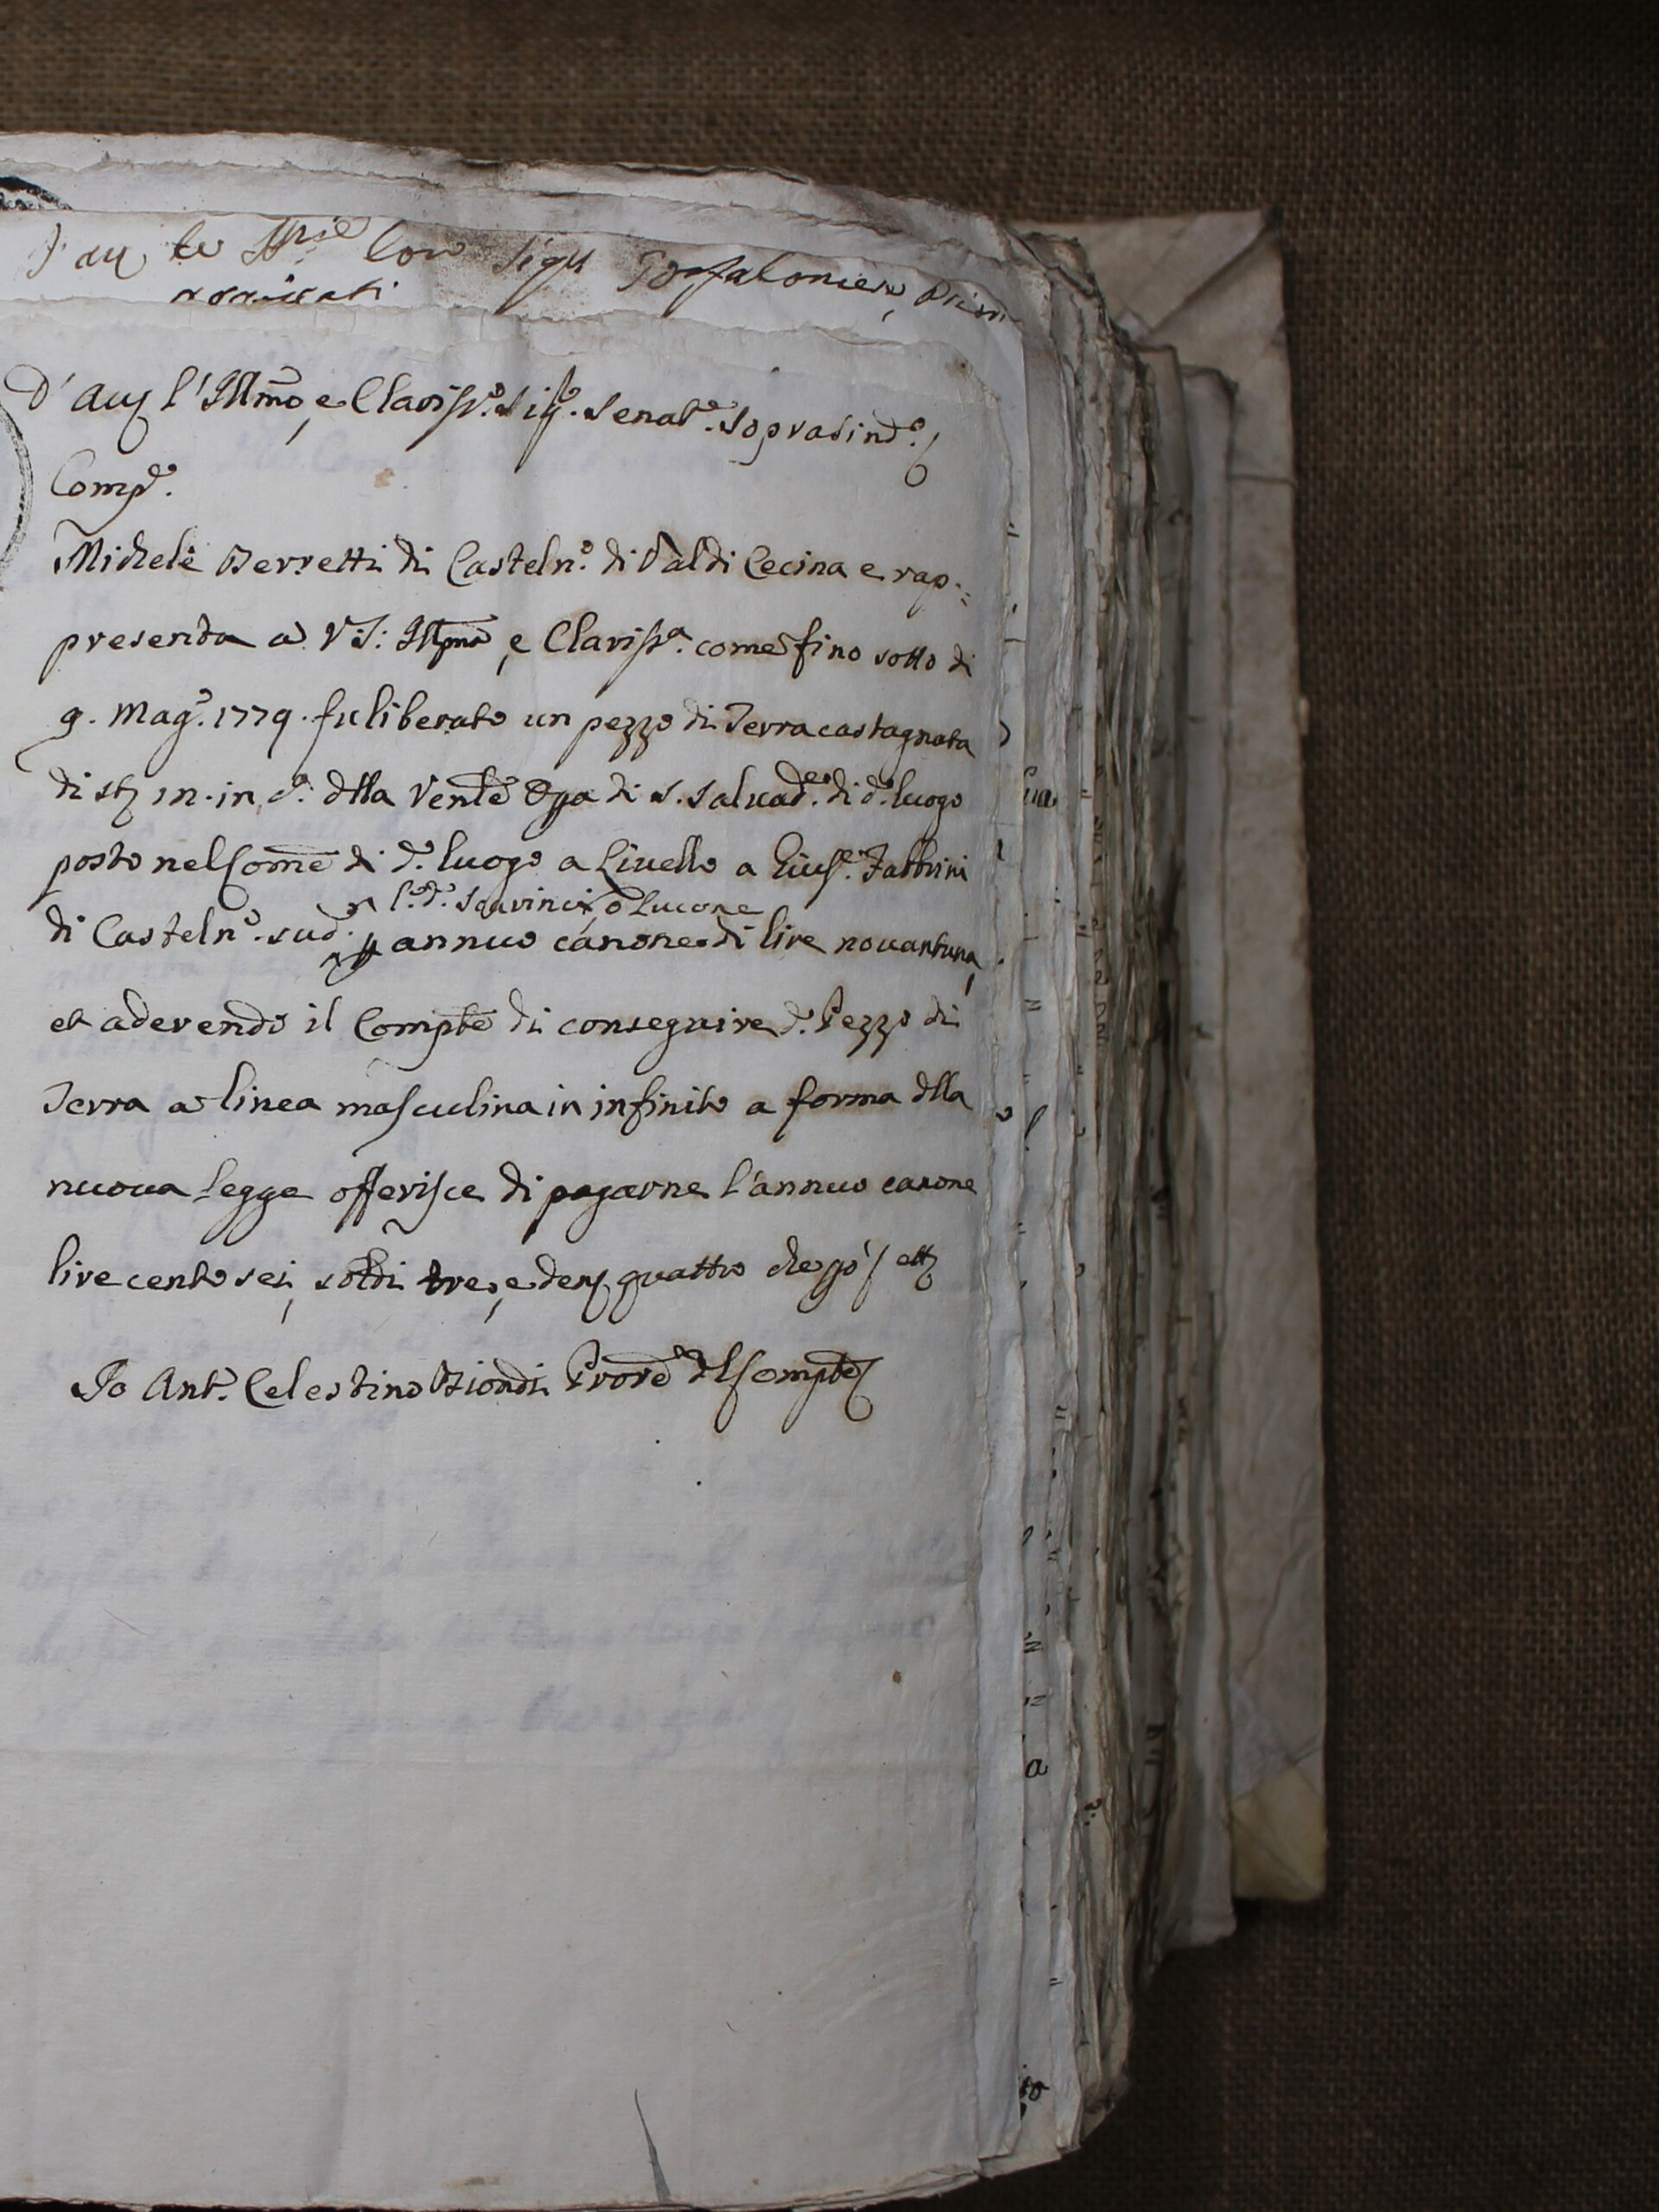 le Ill.rie loro Sig.ri Gonfaloniere, Priori
D' avz l'Illmo, e Clariss.o Sig.e Senat.e Soprasind.o
Comp.e
Michele Berretti di Casteln.o di Val di Cecina e rap:=
presenta a V.S: Illma, e Clariss.a come fino sotto di
9. Mag.o 1779. fu liberato un pezzo di Terra castagnata
di st in. in c.a dlla Vente Opa di S. Salvad.e di d.o luogo
posto nel Come di d.o luogo a Livello a Gius.e Fabbrini
l.o d.o Scavinci, o Lucone
di Casteln.o sud.o p annuo canone di lire novantuna,
et aderendo il Compte di conseguire d.o Pezzo di
Terra a linea masculina in infinito a forma dlla
nuova Legge offerisce di pagarne l'annuo canone
lire cento sei, soldi tre, e den quattro che
Io Ant.o Celestino Biondi Prore del Compte